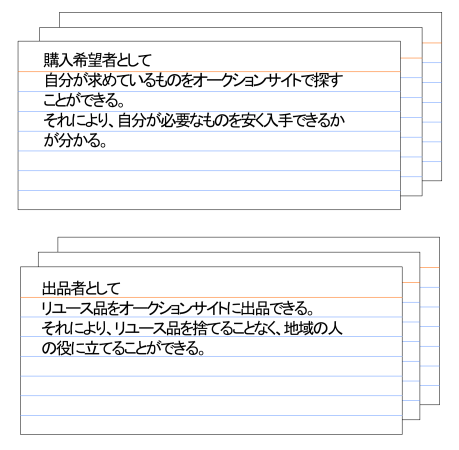 購入希望者として
自分が求めているものをオークションサイトで探す
ことができる。
それにより、自分が必要なものを安く入手できるか
が分かる。
出品者として
リユース品をオークションサイトに出品できる。
それにより、リユース品を捨てることなく、地域の人
の役に立てることができる。